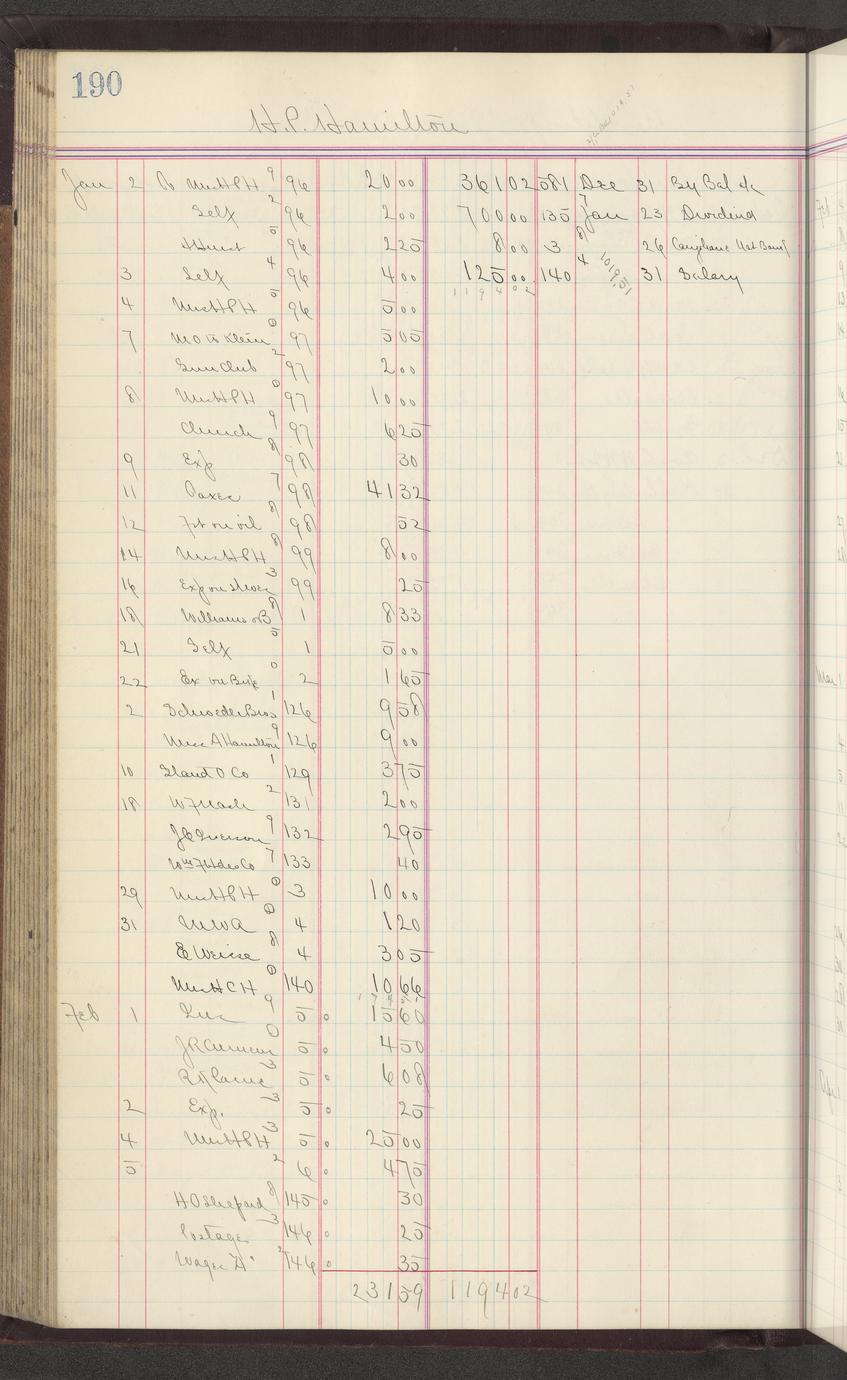 190
H.P. Hamilton
Jan 2 To Mrs H P H 9 96 20 00 361 02 581 Dec 31 By Bal
Self 2 96 2 00 700 00 135 Jan 23 Dividend
5 96 2 25 8 00 3 26 Nat Bank
3 Self 4 96 4 00 125 00 140 31 Salary
1194 02 1019.51
4 Mrs H P H 5 96 5 00
7 Klein 97 5 05
Gun Club 2 97 2 00
8 Mrs H P H 0 97 10 00
Church 9 97 6 25
9 Exp 8 98 30
11 Taxes 7 98 41 32
12 Frt on oil 8 98 52
14 Mrs H P H 8 99 8 00
16 Exp on shoes 3 99 25
18 Williams 8 1 8 33
21 Self 5 1 5 00
22 Ex on 0 2 1 65
2 Schroeder Bros 1 126 9 58
Miss A Hamilton 9 126 9 00
10 Stand O Co 1 129 3 75
18 W F 2 131 2 00
9 132 2 95
Wm F 7 133 40
29 Mrs H P H 0 3 10 00
31 M W A 0 4 1 20
E Weisse 8 4 3 05
Mrs H C H 0 140 10 66
Feb 1 9 5 15 60
J R 0 5 4 50
3 5 6 08
2 Exp. 3 5 25
4 Mrs H P H 3 5 25 00
5 2 6 4 75
H O Shepard 8 145 30
Postage 3 146 25
Wages "A" 146 35
231 59 1194 02